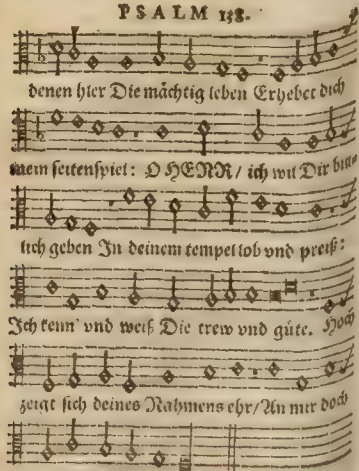 PSALM 138.
denen hier Die mächtig leben Erhebet dich
mein seitenspiel: O HERR/ ich wil Dir brün-
tich geben In deinem tempel lob vnd preiß:
Ich kenn' vnd weiß Die trew vnd güte. Hoch
zeigt sich deines Nahmens ehr/ An mir doch